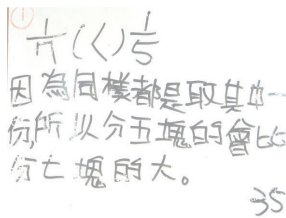 ①
1/7 (<) 1/5
因為同樣都是取其中一
份,所以分五塊的會比
分七塊的大。
35